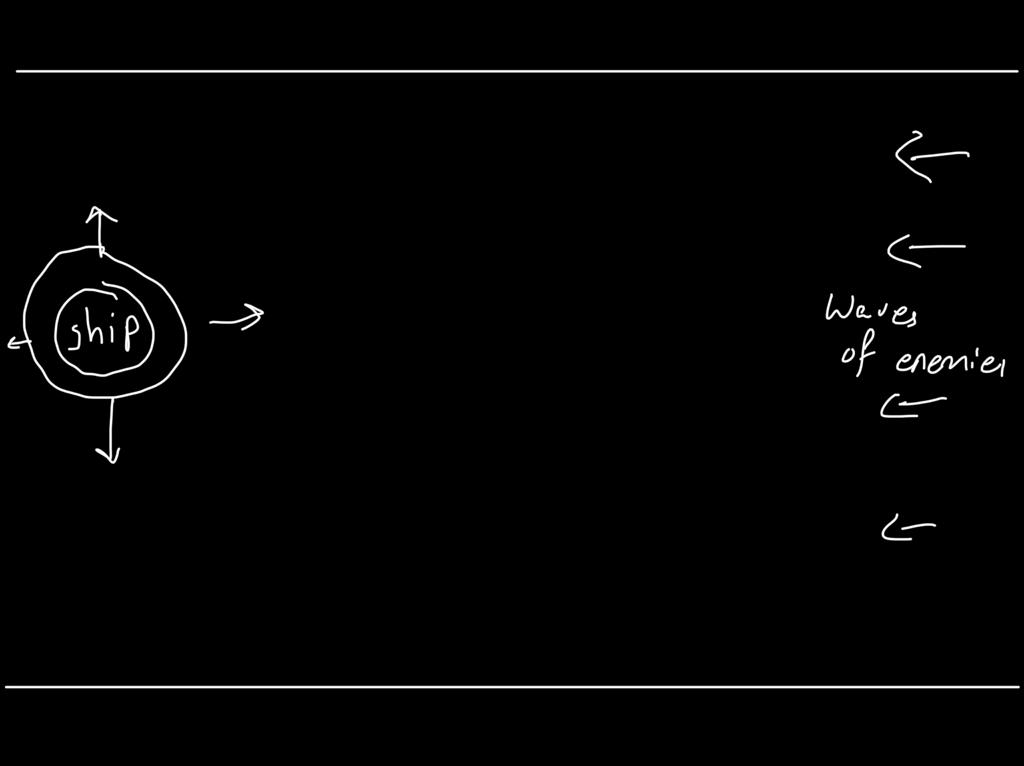 ship
Waves
of enemies